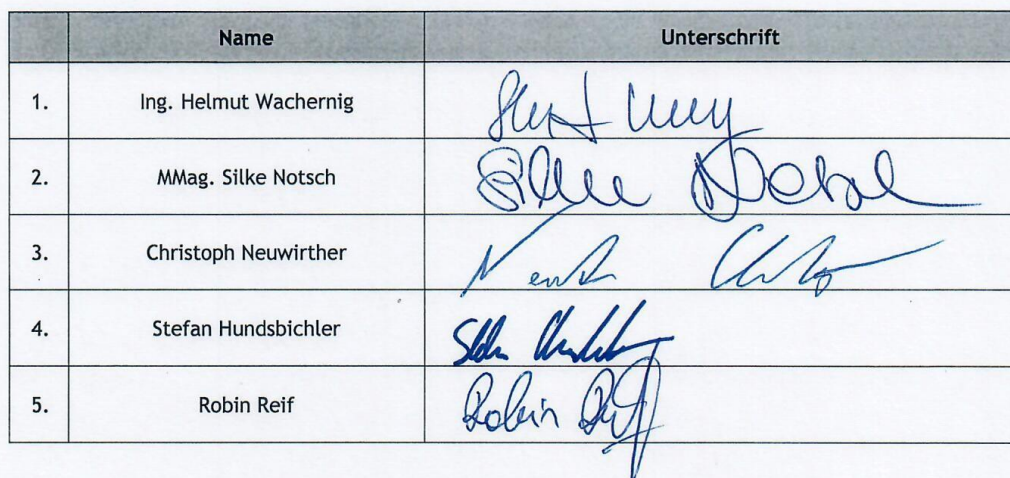 Name Unterschrift
1. Ing. Helmut Wachernig
2. MMag. Silke Notsch Silke Notsch
3. Christoph Neuwirther
4. Stefan Hundsbichler
5. Robin Reif Robin Reif